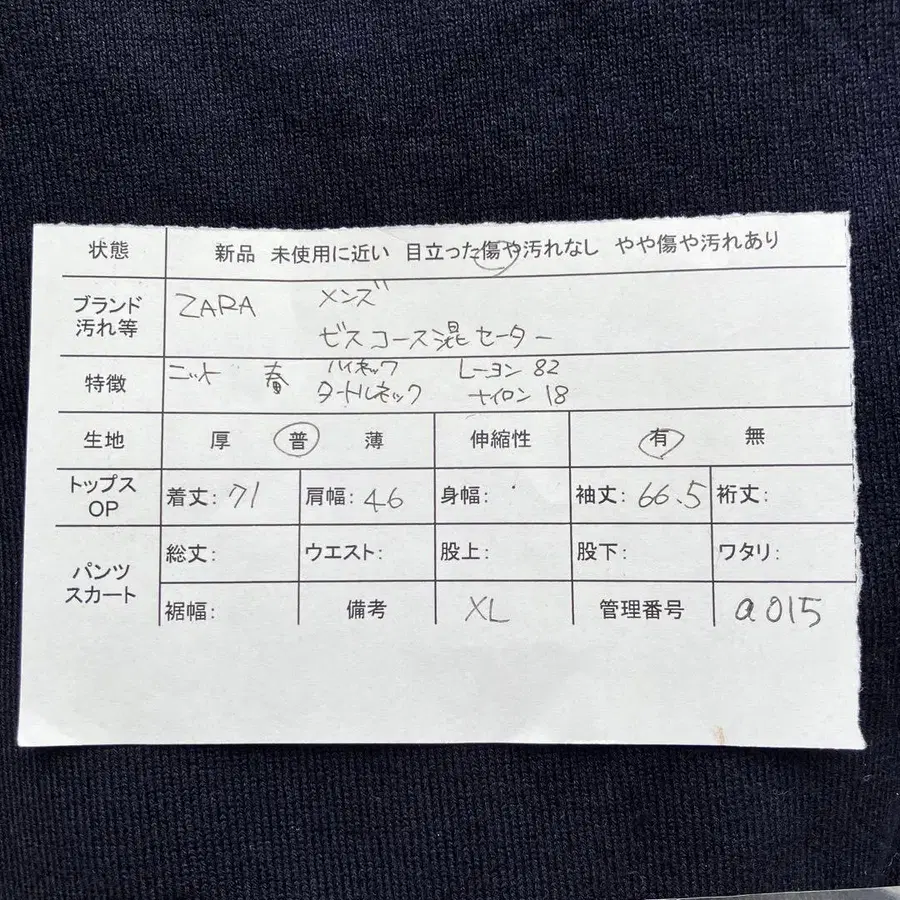 状態 新品 未使用に近い 目立った傷や汚れなし やや傷や汚れあり
ブランド 汚れ等 ZARA メンズ
ビスコース混セーター
特徴 ニット 春 ハイネック レーヨン 82
タートルネック ナイロン 18
生地 厚 普 薄 伸縮性 有 無
トップス OP 着丈: 71 肩幅: 46 身幅: 袖丈: 66.5 裄丈:
パンツ スカート 総丈: ウエスト: 股上: 股下: ワタリ:
裾幅: 備考 XL 管理番号 a015